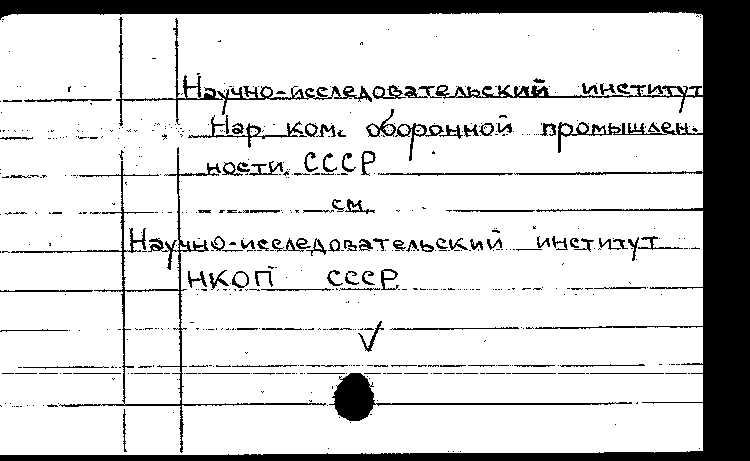 Научно-исследовательский институт
Нар. ком. оборонной промышлен-
ности СССР
см.
Научно-исследовательский институт
НКОП СССР